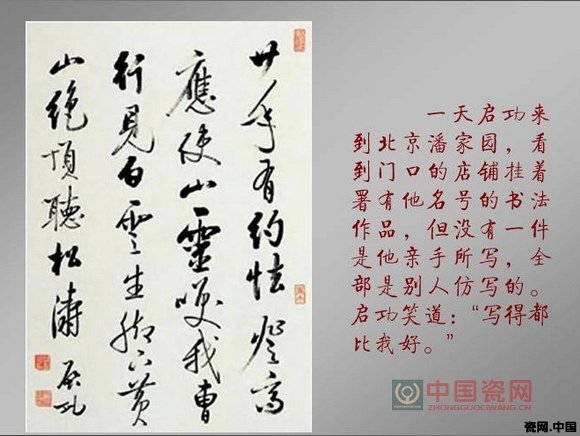 廿年有約怯登高
應使山靈我曹
行見白雲生腳下黃
山絶頂聽松濤 启功
一天启功来
到北京潘家园，看
到门口的店铺挂着
署有他名号的书法
作品，但没有一件
是他亲手所写，全
部是别人仿写的。
启功笑道：“写得都
比我好。”
中国瓷网
ZHONGGUOCIWANG.CN
瓷网.中国